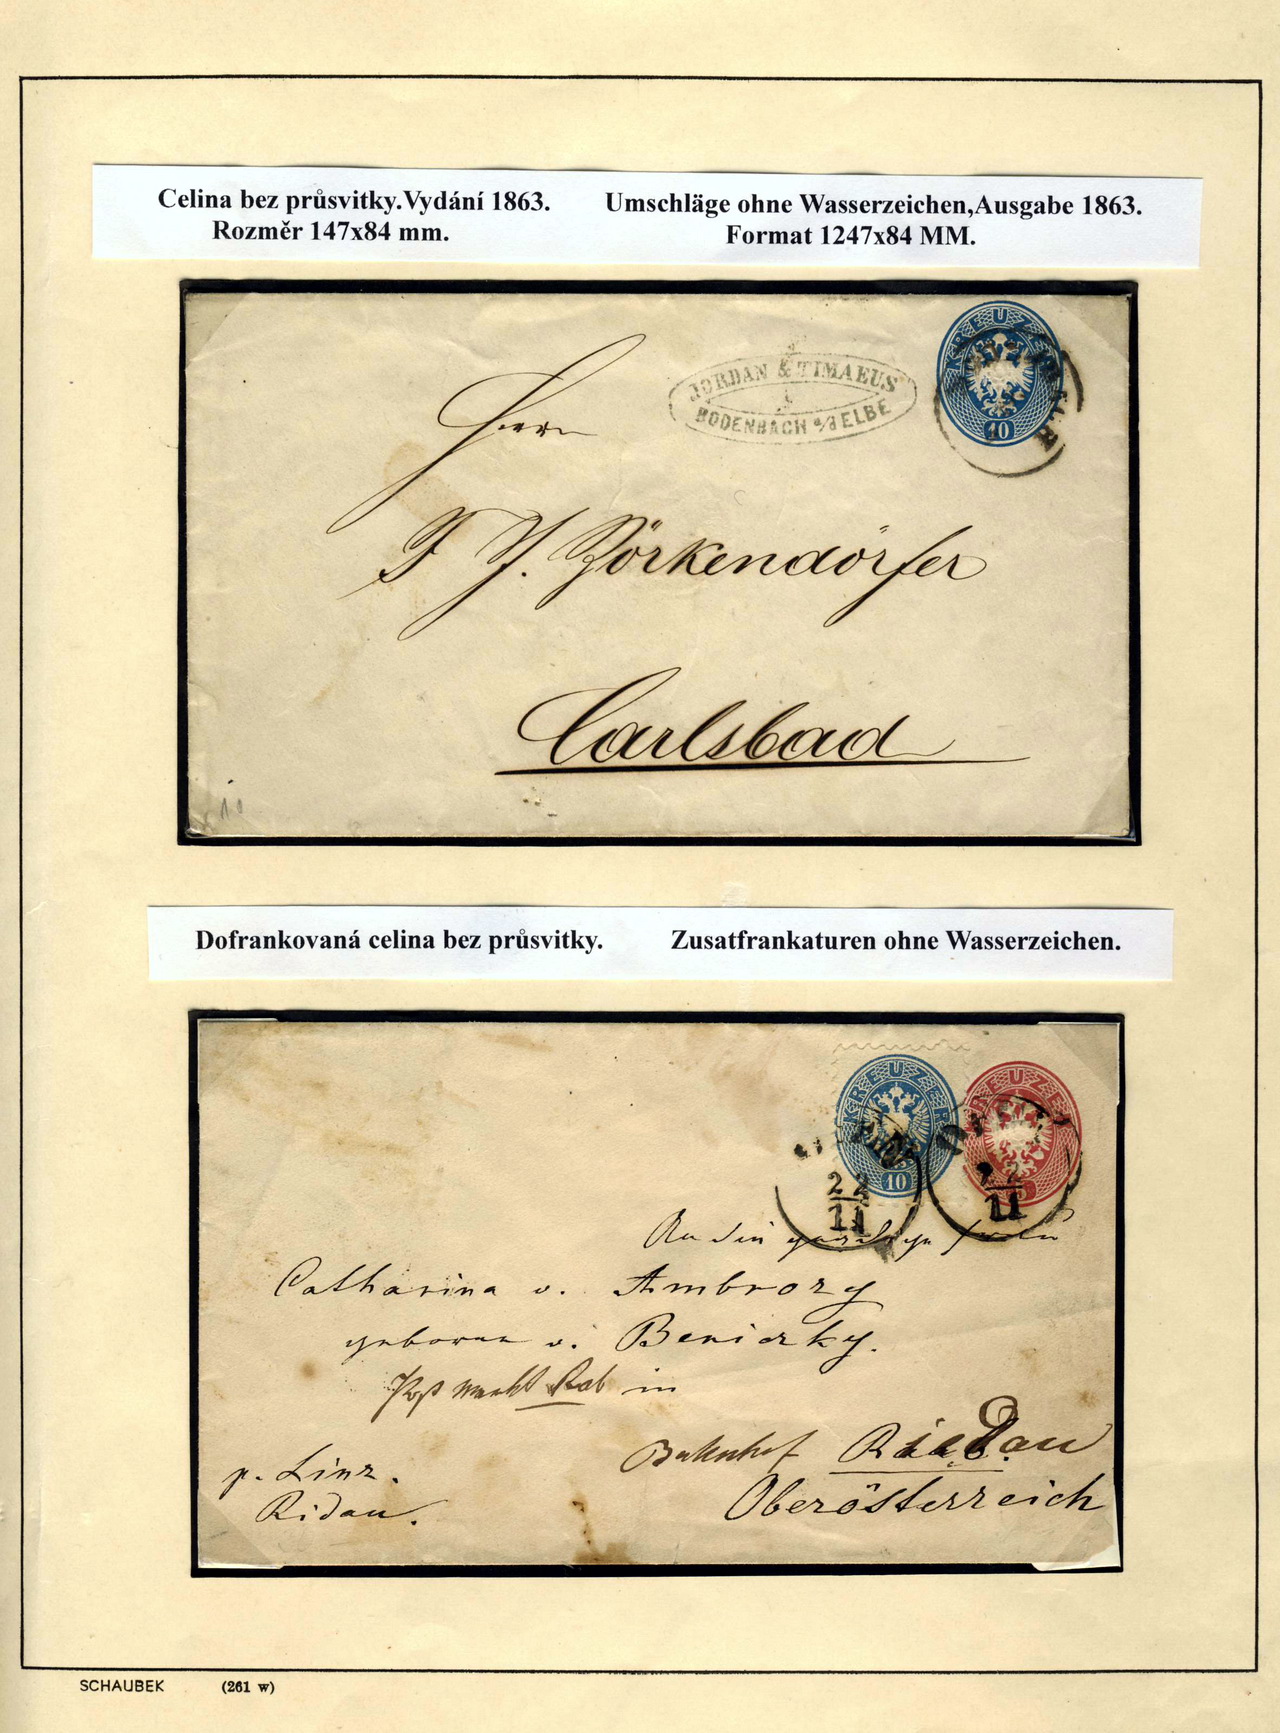 Celina bez průsvitky.Vydání 1863.
Rozměr 147x84 mm.
Umschläge ohne Wasserzeichen,Ausgabe 1863.
Format 1247x84 MM.
KREUZER
10
JORDAN & TIMAEUS
BODENBACH a/d ELBE
Herrn
Zörkendörfer
Carlsbad
Dofrankovaná celina bez průsvitky.
Zusatfrankaturen ohne Wasserzeichen.
KREUZER
10
KREUZER
22
11
22
11
Catharina v. Ambrozy
geborene v. Beniczky.
in
Bahnhof Riedau
Oberösterreich
p. Linz.
Ridau.
SCHAUBEK (261 w)